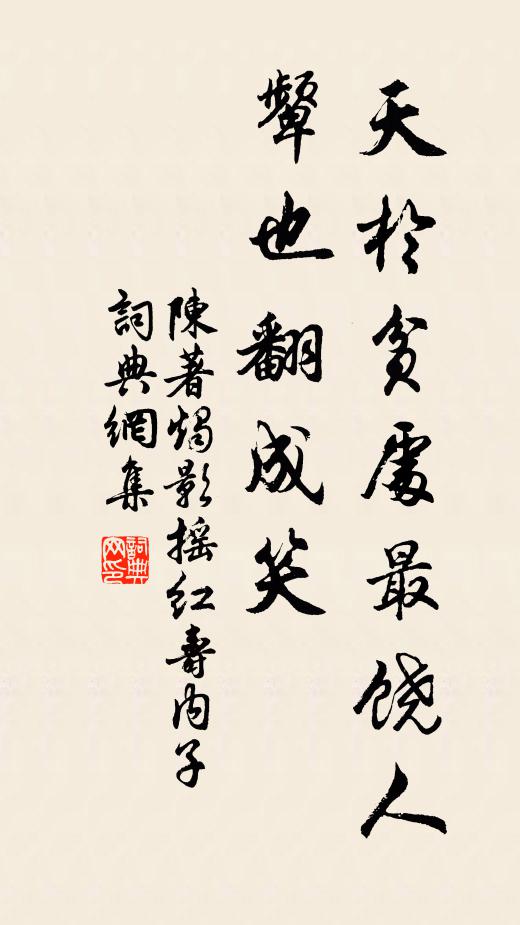 天於贫處最饶人
颦也翻成笑
陳著燭影摇红壽内子
詞典網集
詞典
网印